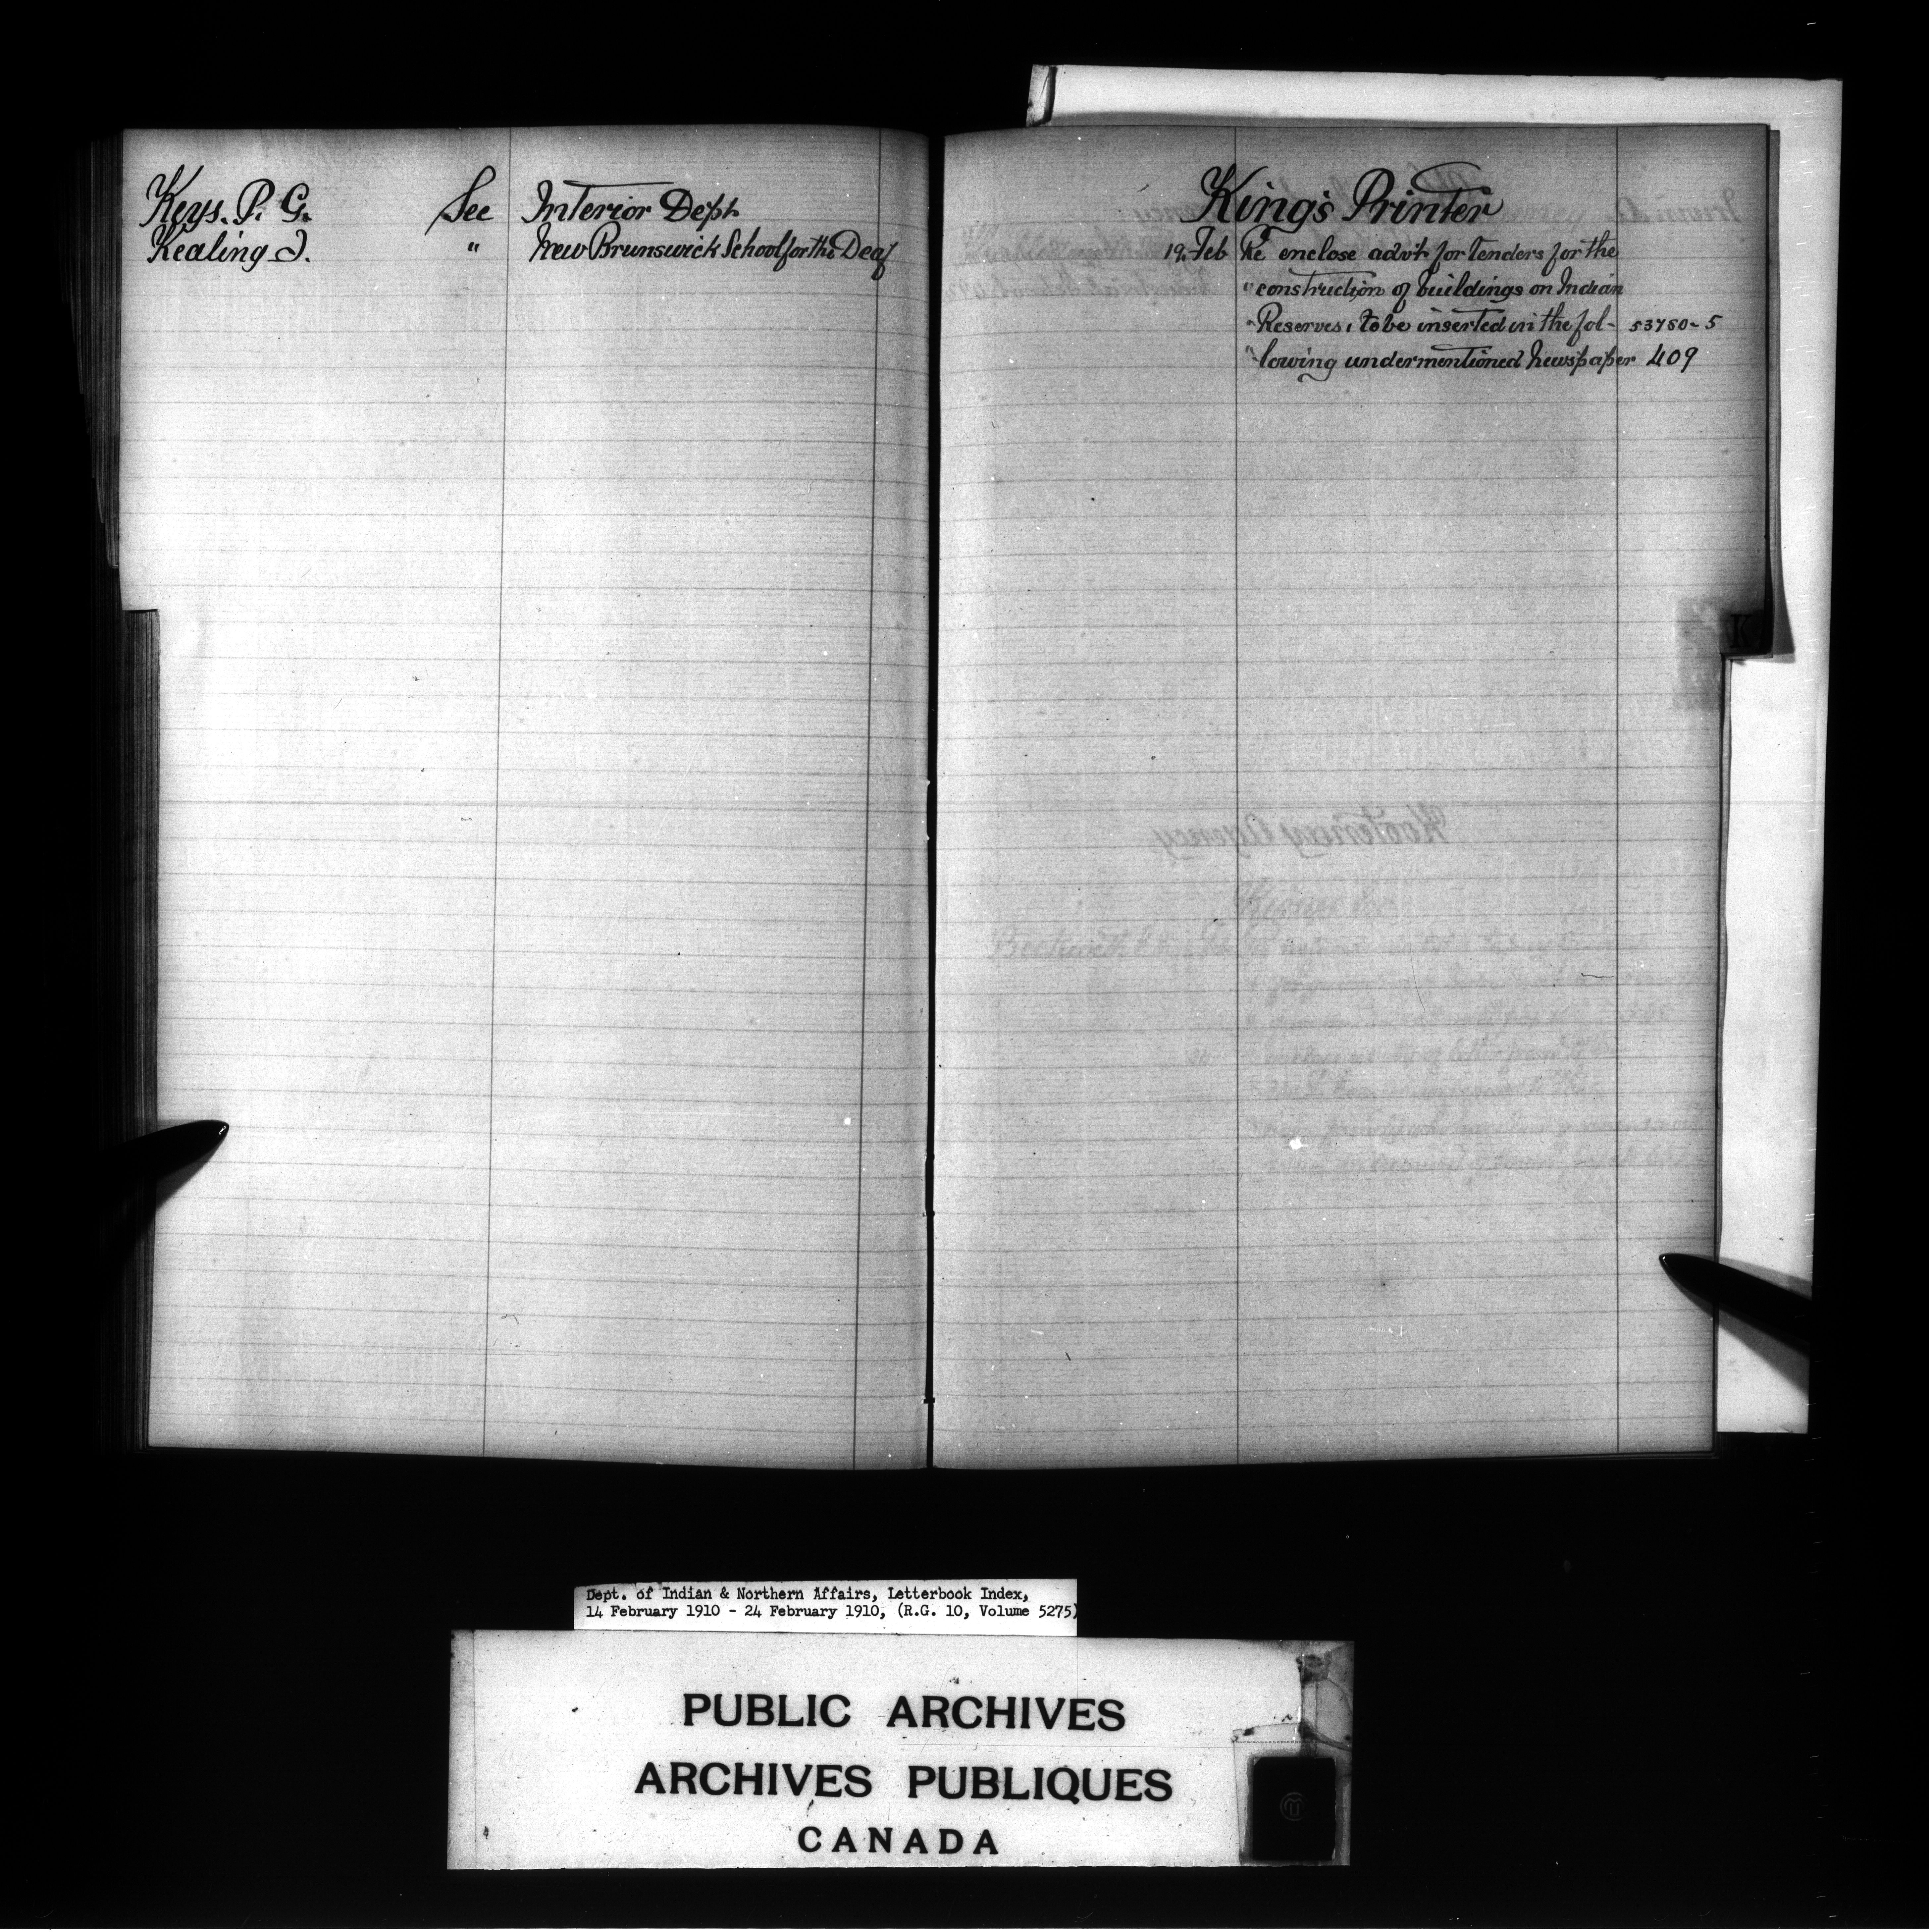 Keys. P. G. See Interior Dept
Kealing J. " New Brunswick School for the Deaf
King's Printer
19. Feb Re enclose advt for tenders for the
" construction of buildings on Indian
" Reserves, to be inserted in the fol- 53750-5
" lowing undermentioned Newspaper 409
K
Kootenay Agency
Dept. of Indian & Northern Affairs, Letterbook Index,
14 February 1910 - 24 February 1910, (R.G. 10, Volume 5275)
PUBLIC ARCHIVES
ARCHIVES PUBLIQUES
CANADA